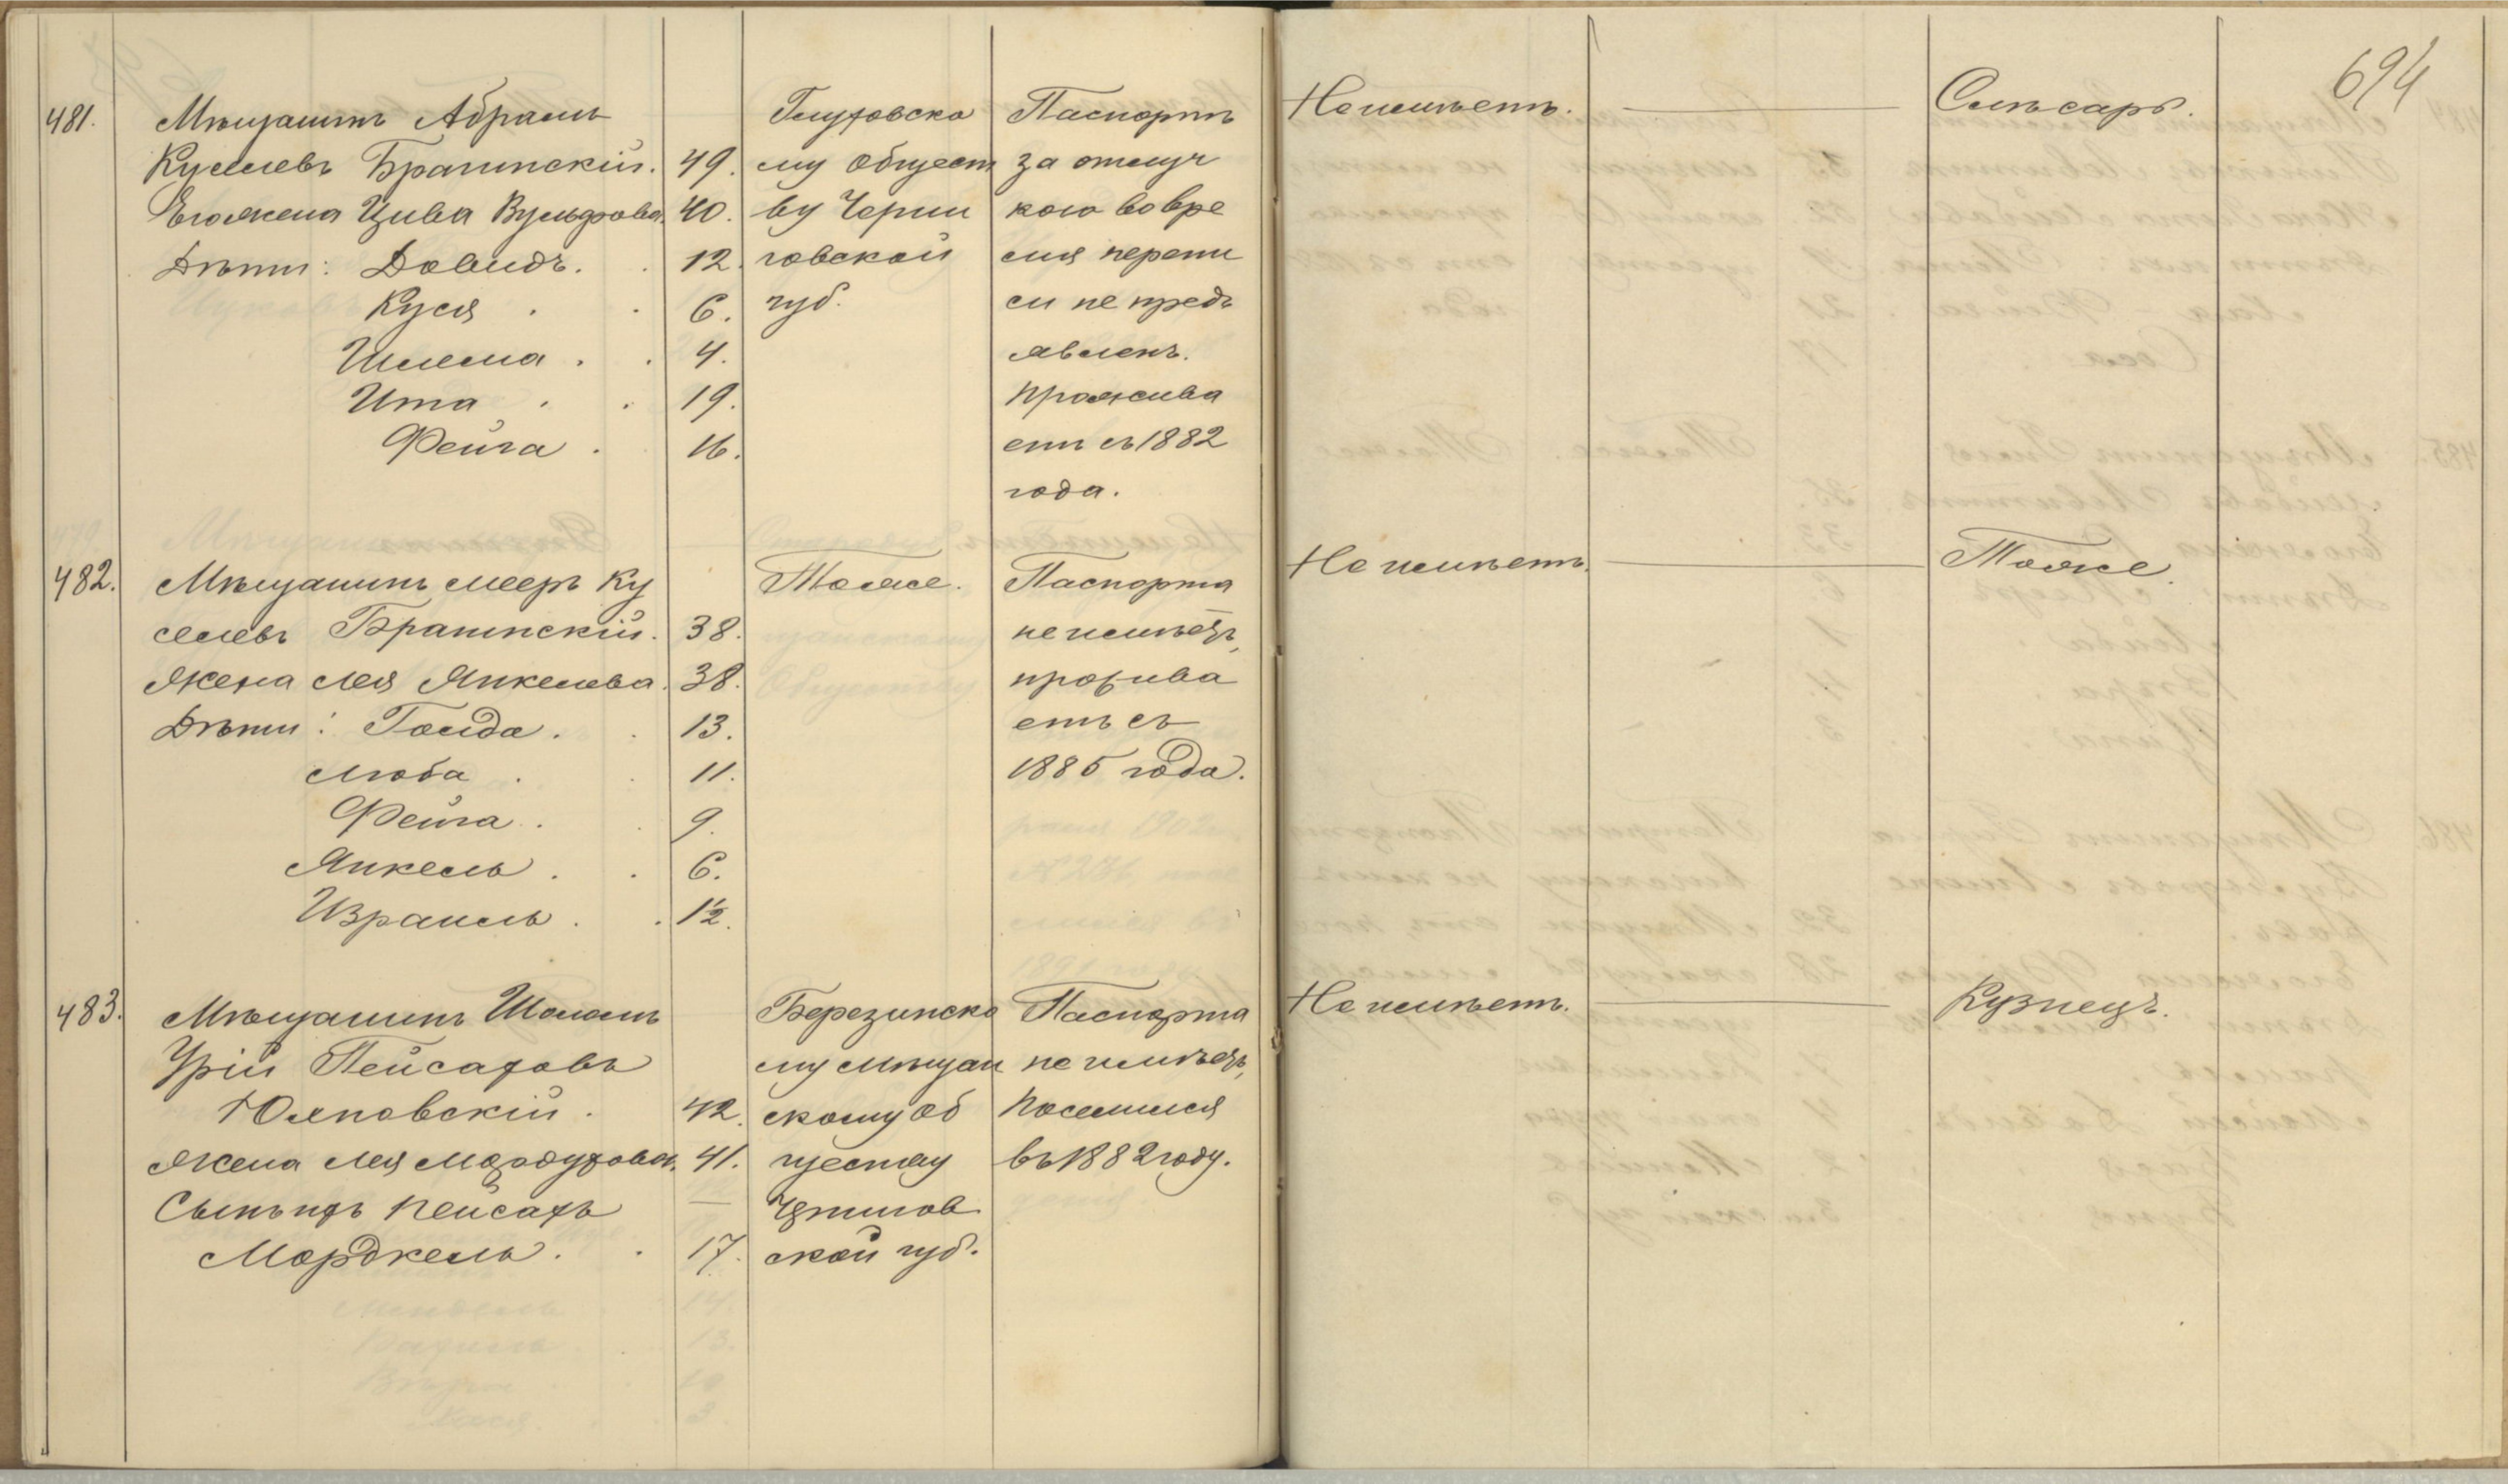 694
481.
Мѣщанинъ Абрамъ
Куселевъ Брагинскій. 49.
Его жена Цива Вульфова. 40.
Дѣти: Довидъ. . 12.
Куся . . 6.
Шлема . . 4.
Ита . . 19.
Фейга . 16.
Глуховско
му общест
ву Черни
говской
губ.
Паспортъ
за отлуч
кою во вре
мя перепи
си не предъ
явленъ.
Прожива
етъ съ 1882
года.
Не имѣетъ. —
Слѣсарь.
482.
Мѣщанинъ Мееръ Ку
селевъ Брагинскій. 38.
Жена Лея Янкелева. 38.
Дѣти: Голда . . 13.
Люба . . 11.
Фейга . . 9.
Янкель . . 6.
Израиль . . 1½.
Тоже.
Паспорта
не имѣетъ,
прожива
етъ съ
1885 года.
Не имѣетъ. —
Тоже.
483.
Мѣщанинъ Шоломъ
Урій Пейсаховъ
Юдновскій . 42.
Жена Лея Мордухова. 41.
Сынъ ихъ Пейсахъ —
Мордкель . . 17.
Березинско
му мѣщан
скому об
ществу
Черниговской губ.
Паспорта
не имѣетъ,
поселился
въ 1882 году.
Не имѣетъ. —
Кузнецъ.